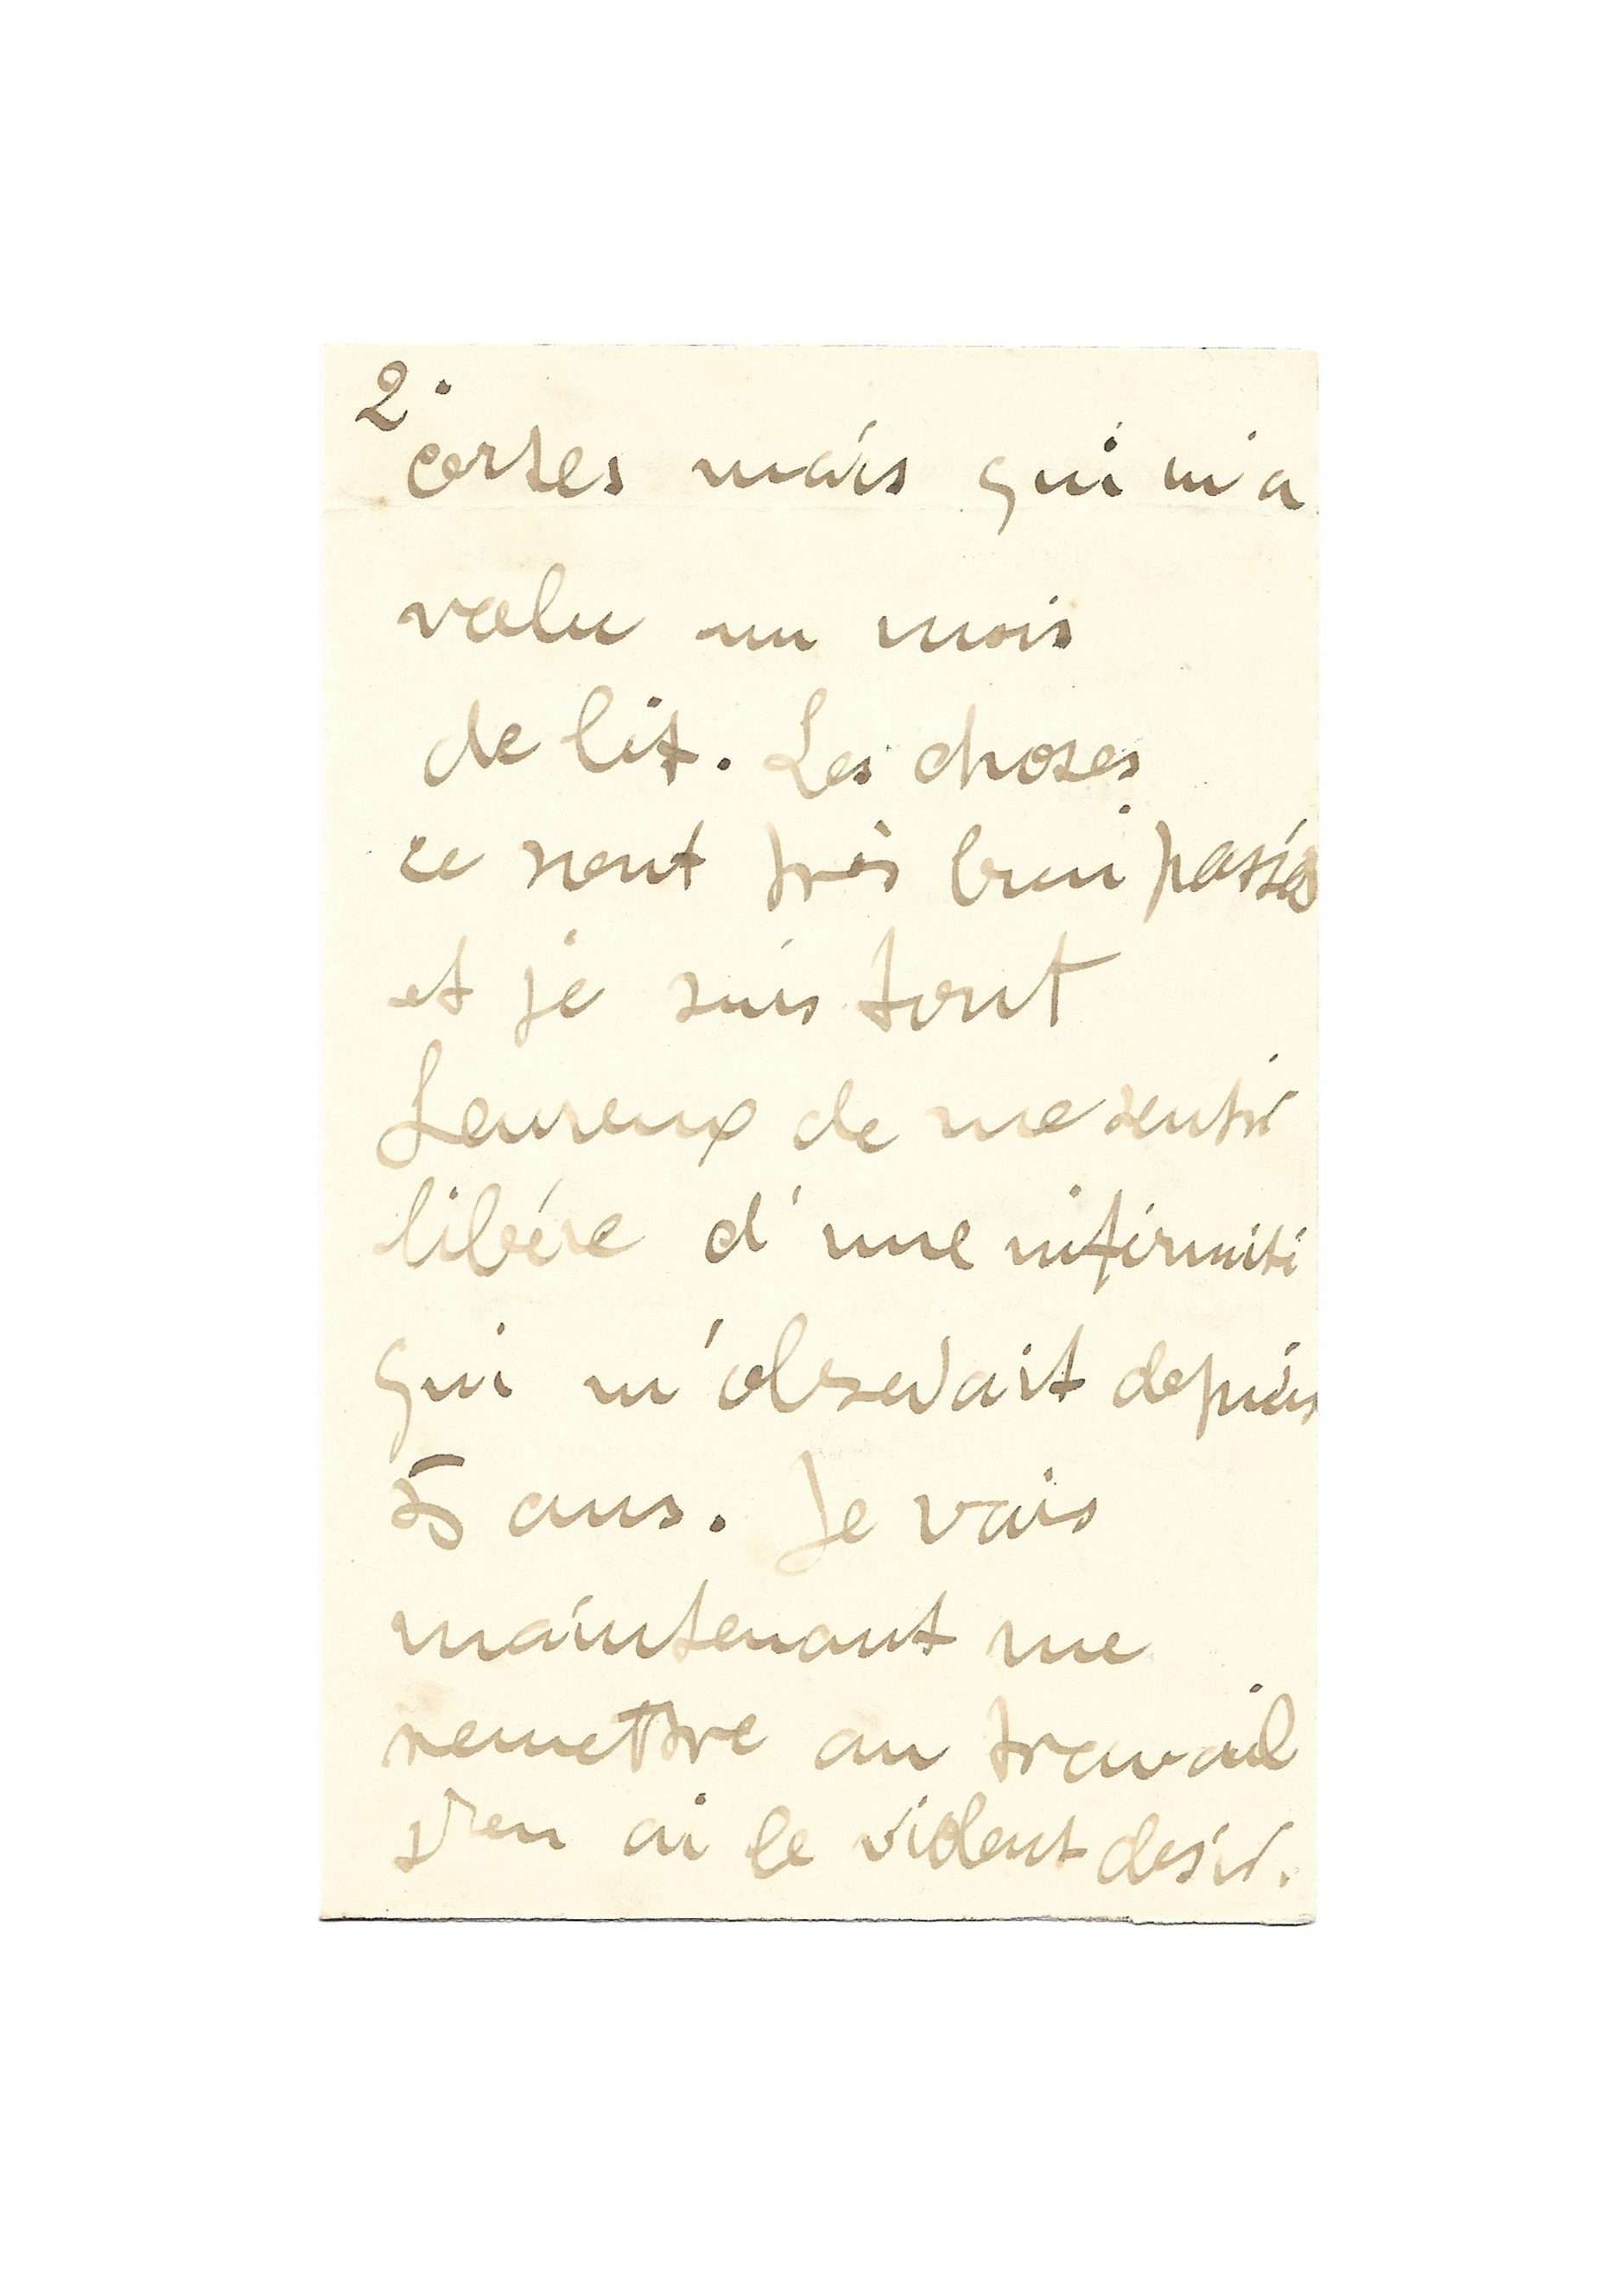 2.
certes mais qui m'a
valu un mois
de lit. Les choses
ce sont très bien passées
et je suis tout
heureux de me sentir
libéré d'une infirmité
qui m'obsédait depuis
5 ans. Je vais
maintenant me
remettre au travail
J'en ai le violent desir.